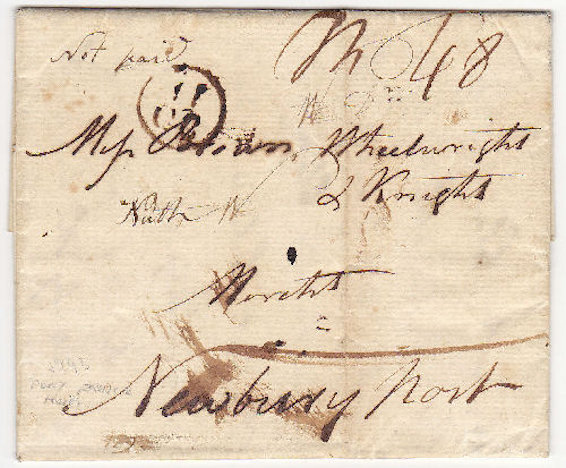 Not paid
48
Mess Brown, Wheelwright
& Knight
Nath W
Mercht
Newbury Port